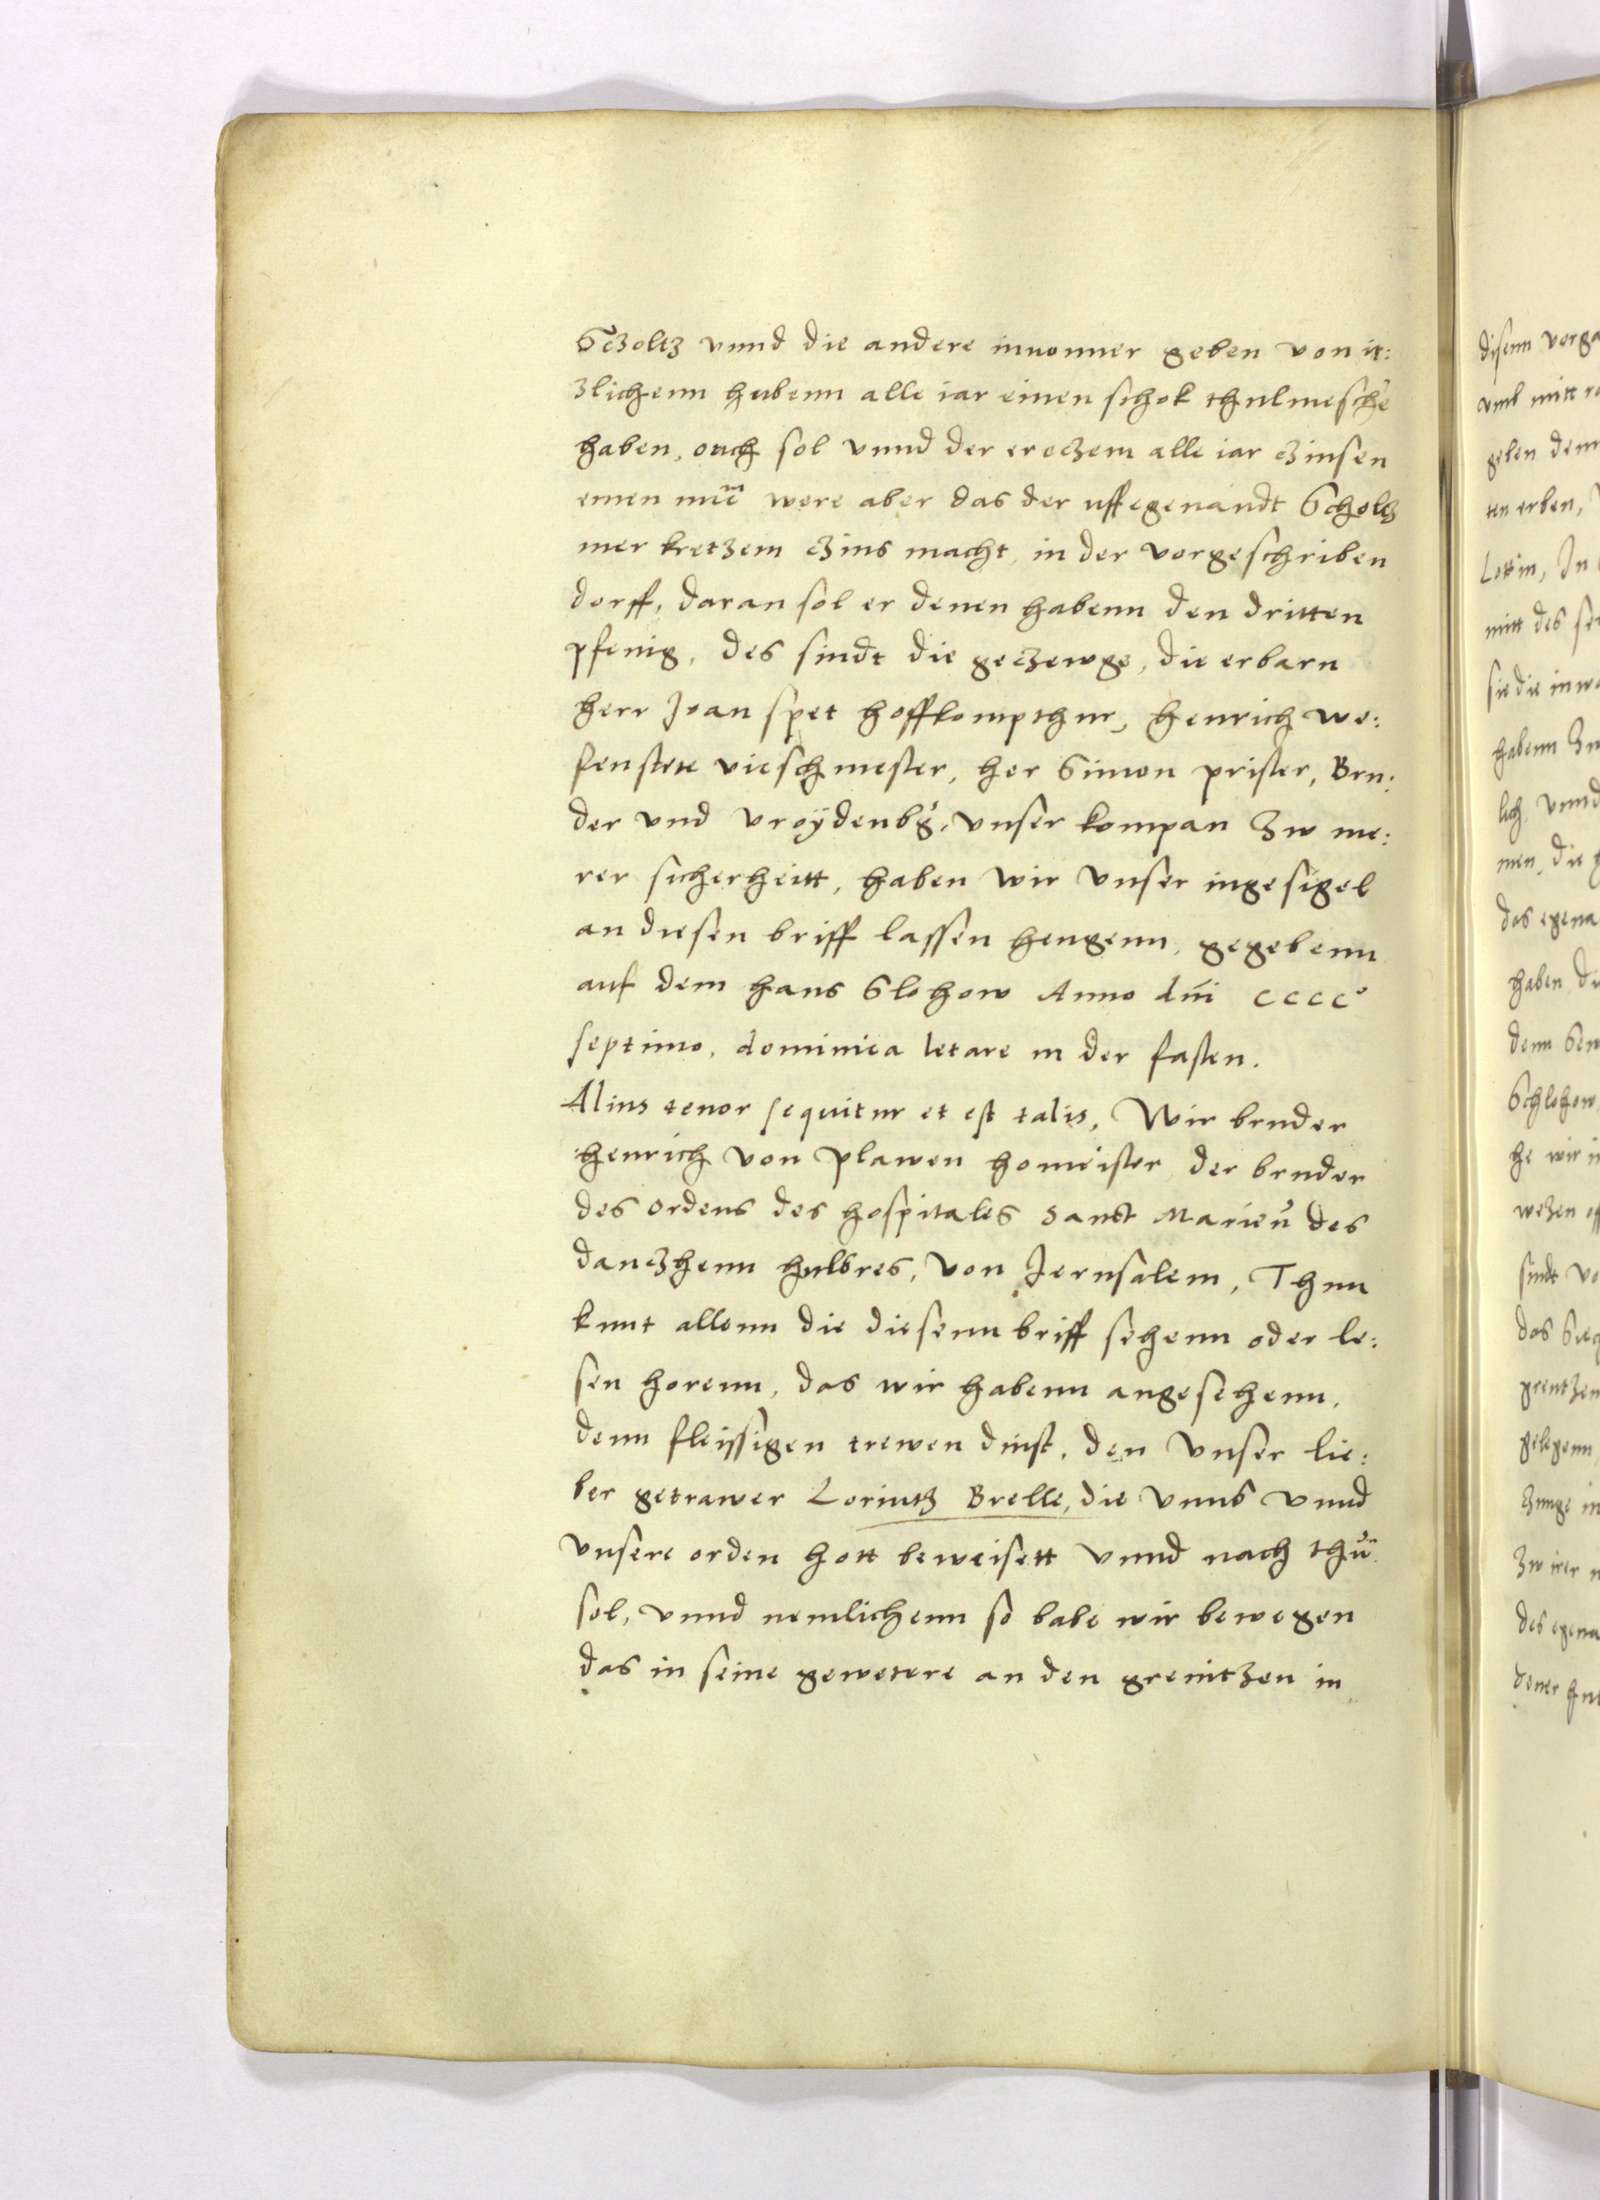 Sczoltz vnnd die andere inwonner geben von it:
zlichenn hubenn alle iar einen schok thulmeschē
haben, ouch sol vnnd der eroczem alle iar czinsen
einen mr̃c were aber das der uffegenandt Scholtz
mer kretzem czins macht, in der vorgeschriben
dorff, daran sol er denen habenn den dritten
pfenig, des sindt die geczewge, die erbarn
herr Joan spet hoffkompthur, henrich we:
senstete vieschmester, her Simon prister, Bru:
der vnd vroÿdenbg̃, vnser kompan zw me:
rer sicherheitt, haben wir vnser ingesigel
an diesen briff lassen hengenn, gegebenn
auf dem haus Slohow Anno dn̄i cccc°
septimo, dominica letare in der fasten.
Alius tenor sequitur et est talis, Wir bruder
henrich von plawen homeister der bruder
des ordens des hospitales sanct Marieū des
danczhenn hulbres, von Jerusalem, Thun
kunt allenn die diesenn briff sehenn oder le:
sen horenn, das wir habenn angesehenn,
denn fleissigen trewen dinst, den vnser lie:
ber getrawer Lorintz Brelle, die vnns vnnd
vnsere orden hott beweisett vnnd nach thū
sol, vnnd nemlichenn so babe wir bewegen
das in seine gewetere an den grenitzen in
disenn verga
vmb mitt
geben dem
ten erben,
Lottin, In
mitt des
sie die inwo
habenn zw
lich vnnd
men, die
das egena
haben
denn
Schlohow
he wir
wezen
sindt vo
das
grentzen
gelegenn
zw irer
des egena